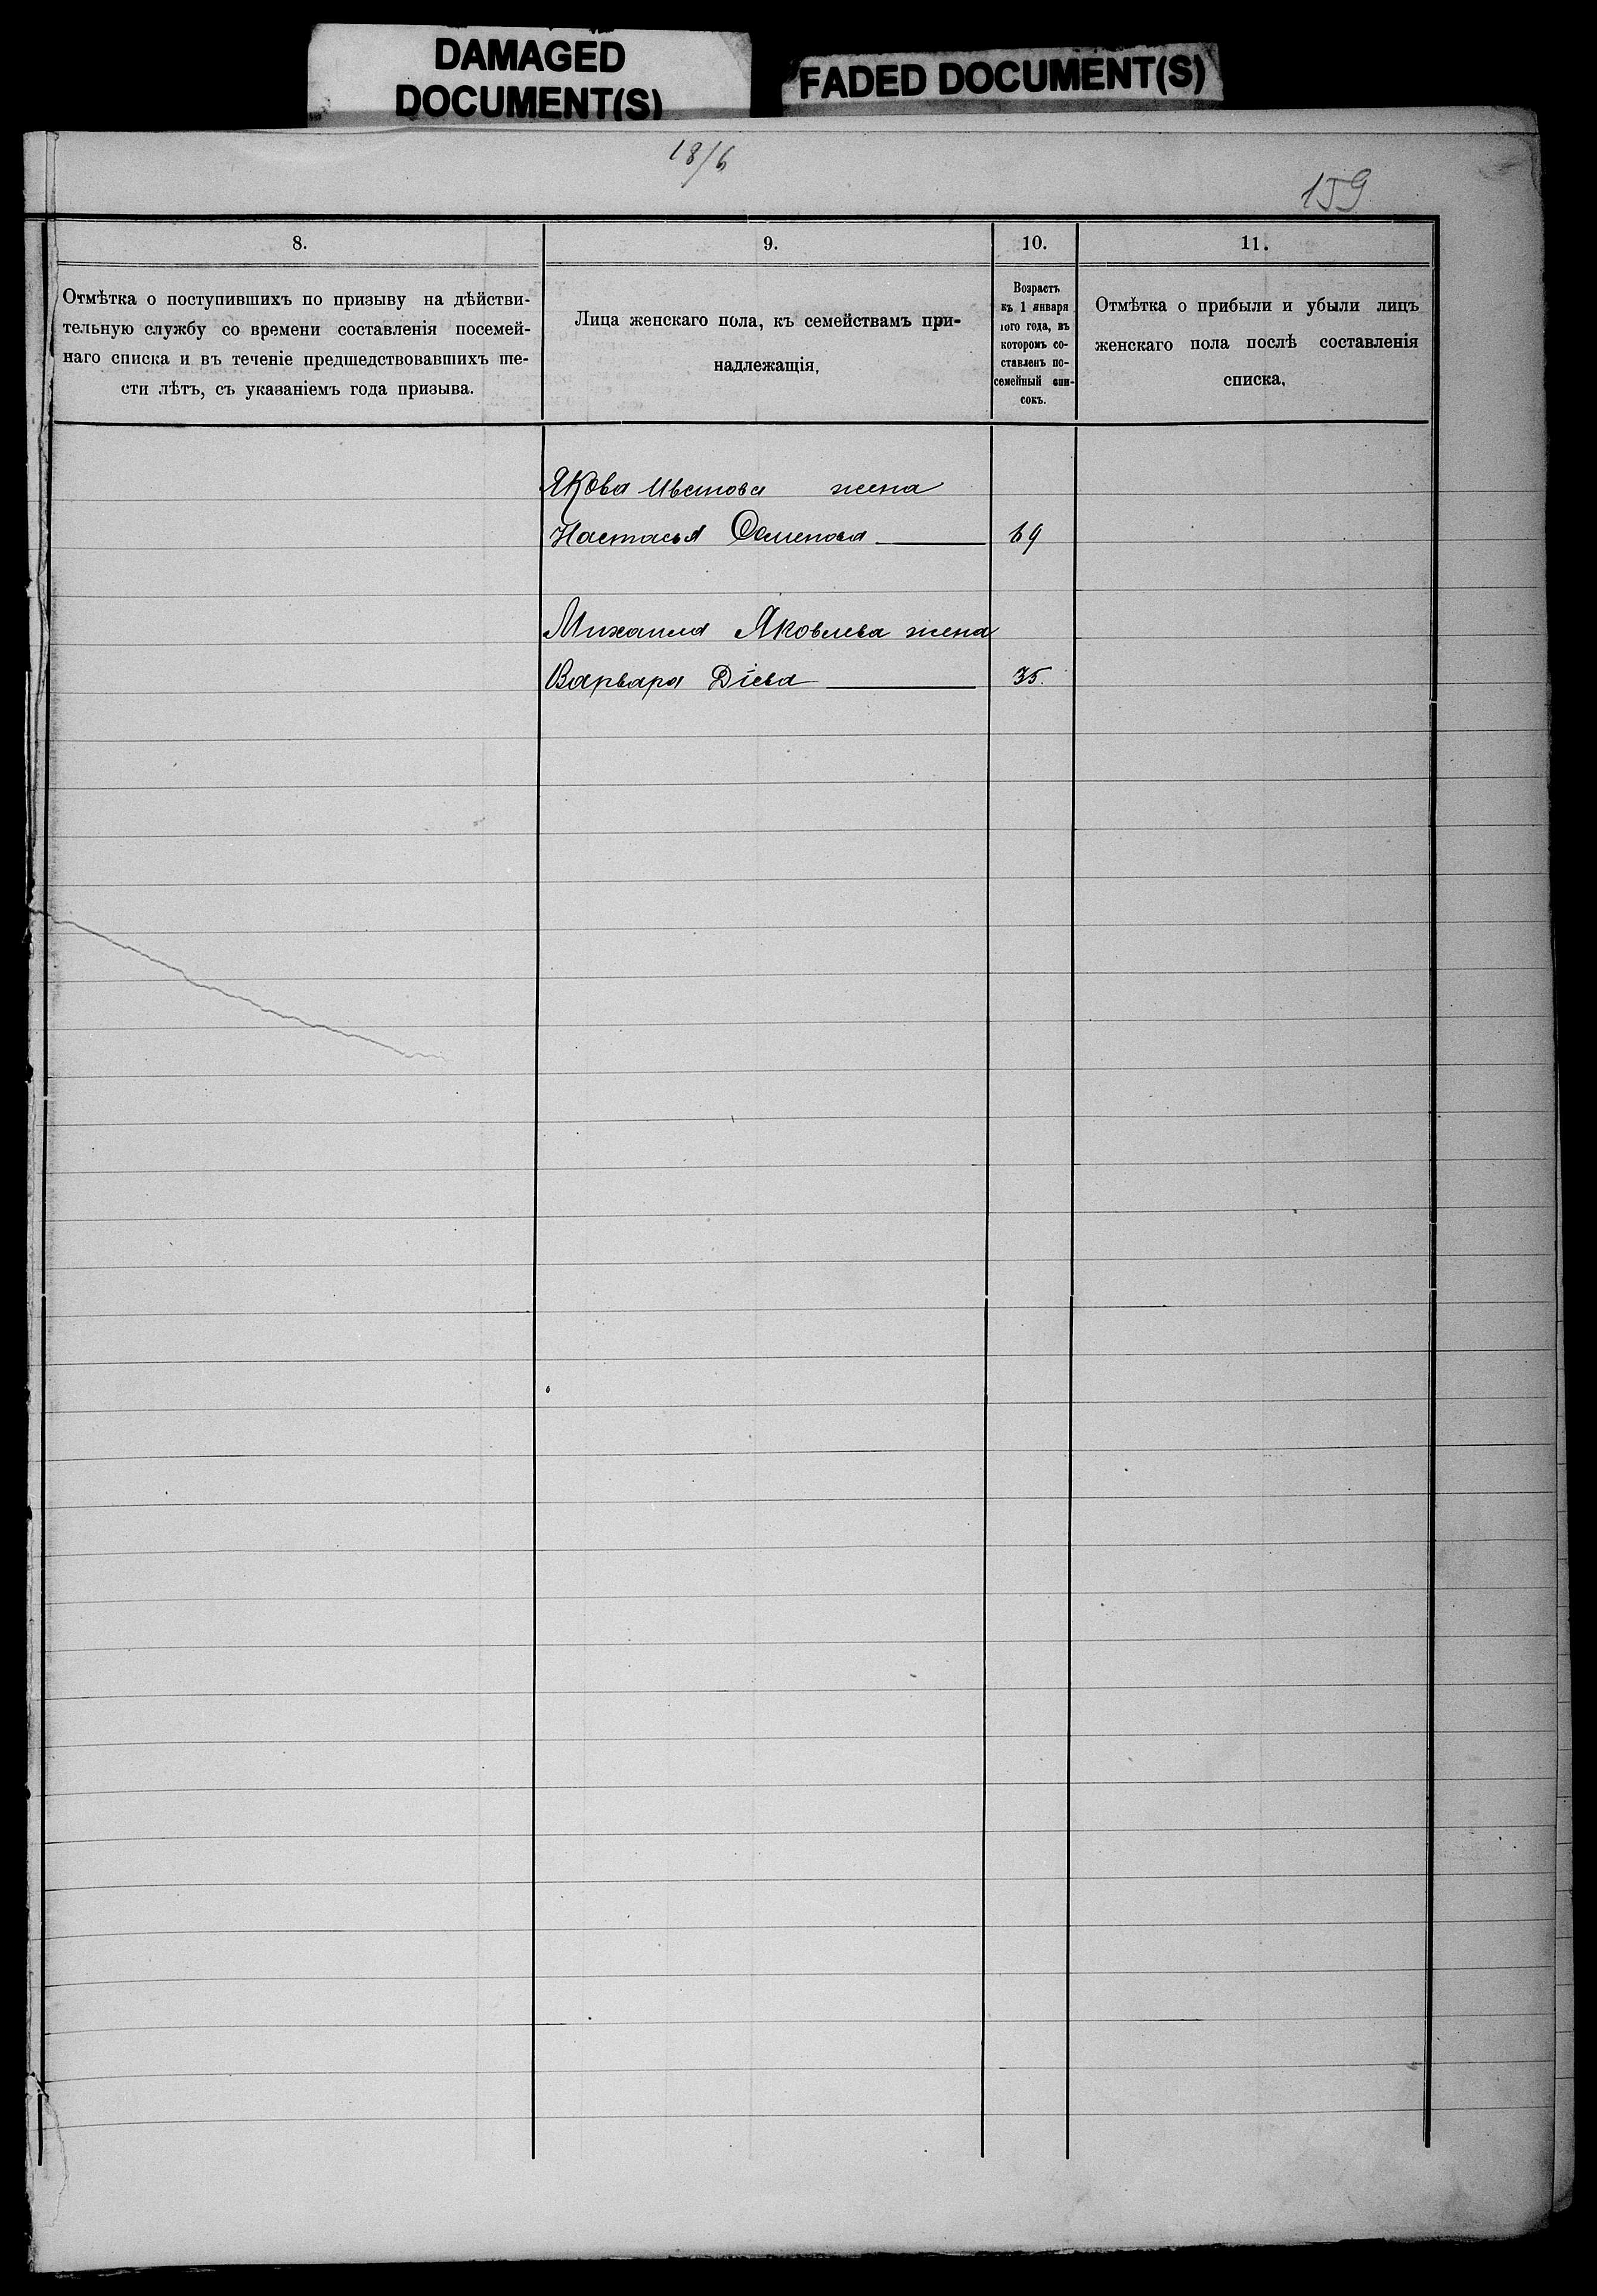 DAMAGED
DOCUMENT(S)
FADED DOCUMENT(S)
18/6
159
8.
9.
10.
11.
Отмѣтка о поступившихъ по призыву на дѣйстви-
тельную службу со времени составленія посемей-
наго списка и въ теченіе предшедствовавшихъ ше-
сти лѣтъ, съ указаніемъ года призыва.
Лица женскаго пола, къ семействамъ при-
надлежащія,
Возрастъ
къ 1 января
того года, въ
которомъ со-
ставленъ по-
семейный спи-
сокъ.
Отмѣтка о прибыли и убыли лицъ
женскаго пола послѣ составленія
списка,
Якова Иванова жена
Настасья Семенова 69
Михаила Яковлева жена
Варвара Діева 35.